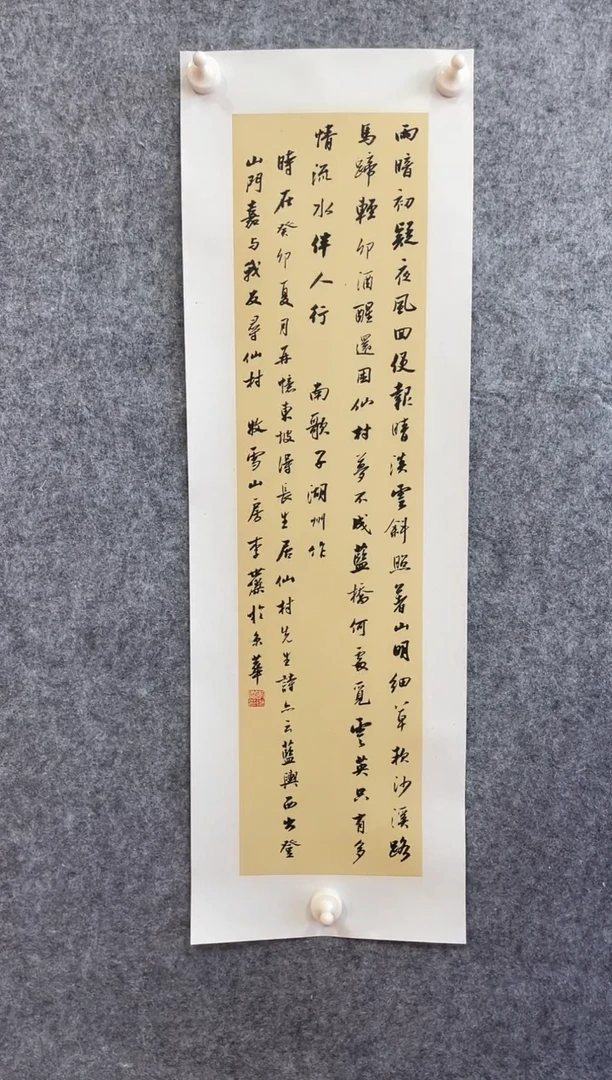 雨暗初疑夜風回便報晴淡雲斜照著山明細草軟沙溪路
馬蹄輕卯酒醒還困仙村夢不成藍橋何處覓雲英只有多
情流水伴人行 南歌子湖州作
時在癸卯夏月再憶東坡得長生居仙村先生詩亦云藍輿西出登
山門嘉与我友尋仙村 牧雪山房李於京華